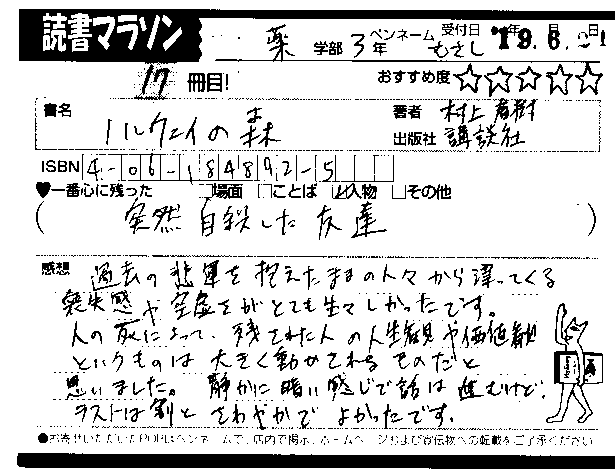 読書マラソン
薬 学部 3年 ペンネーム むさし 受付日 '19.6.21
17 冊目! おすすめ度 ☆☆☆☆☆
書名 ノルウェイの森
著者 村上春樹
出版社 講談社
ISBN 4-06-184892-5
♥一番心に残った □場面 □ことば ☑人物 □その他
( 突然自殺した友達 )
感想 過去の悲運を抱えたままの人々から漂ってくる
喪失感や空虚さがとても生々しかったです。
人の死によって、残された人の人生観や価値観
というものは大きく動かされるものだと
思いました。静かに暗い感じで話は進むけど、
ラストは割とさわやかでよかったです。
●お寄せいただいたPOPはペンネームで、店内で掲示、ホームページおよび宣伝物への転載をご了承ください